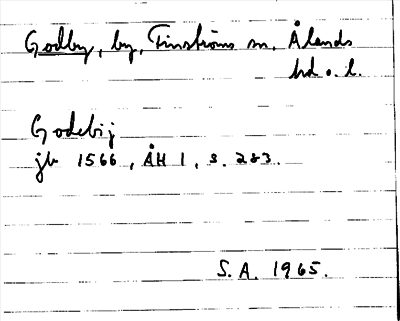 Godby, by, Finströms sn, Ålands
hd o. l.
Godebij
jb 1566, ÅH 1, s. 283.
S.A. 1965.